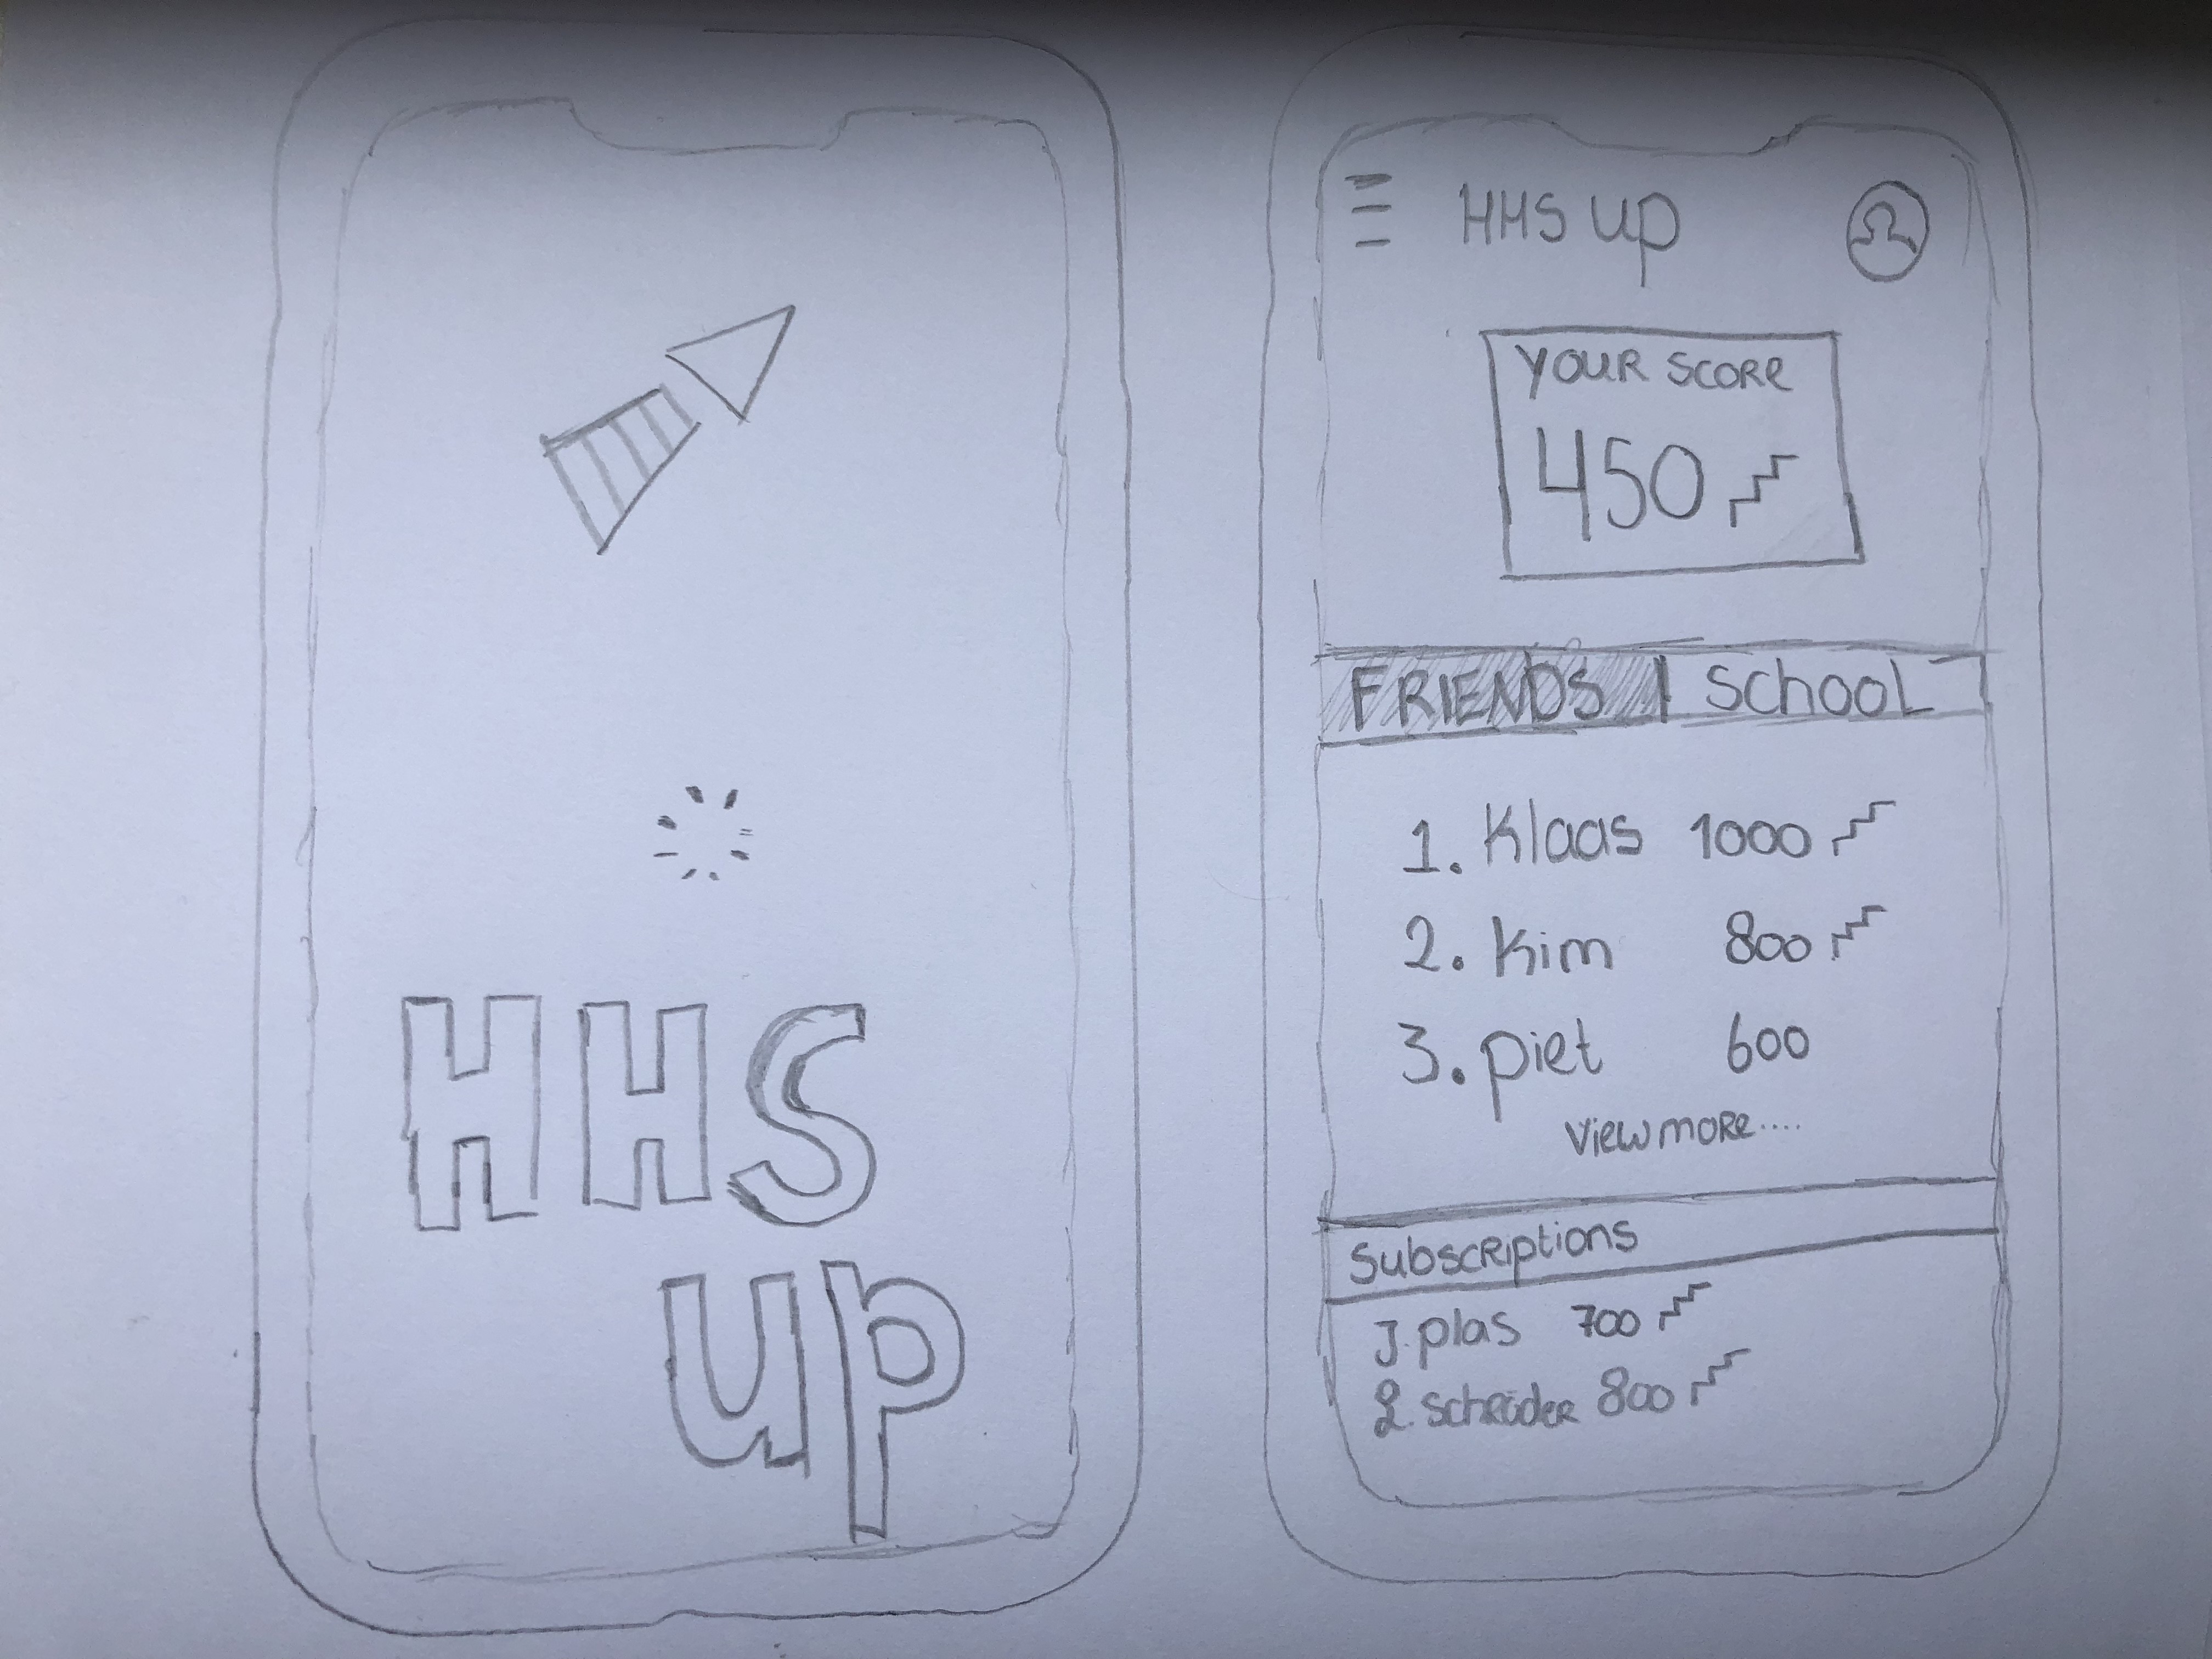 HHS
up
HHS up
YOUR SCORE
450
FRIENDS | School
1. Klaas 1000
2. Kim 800
3. piet 600
View more....
Subscriptions
J. plas 700
800